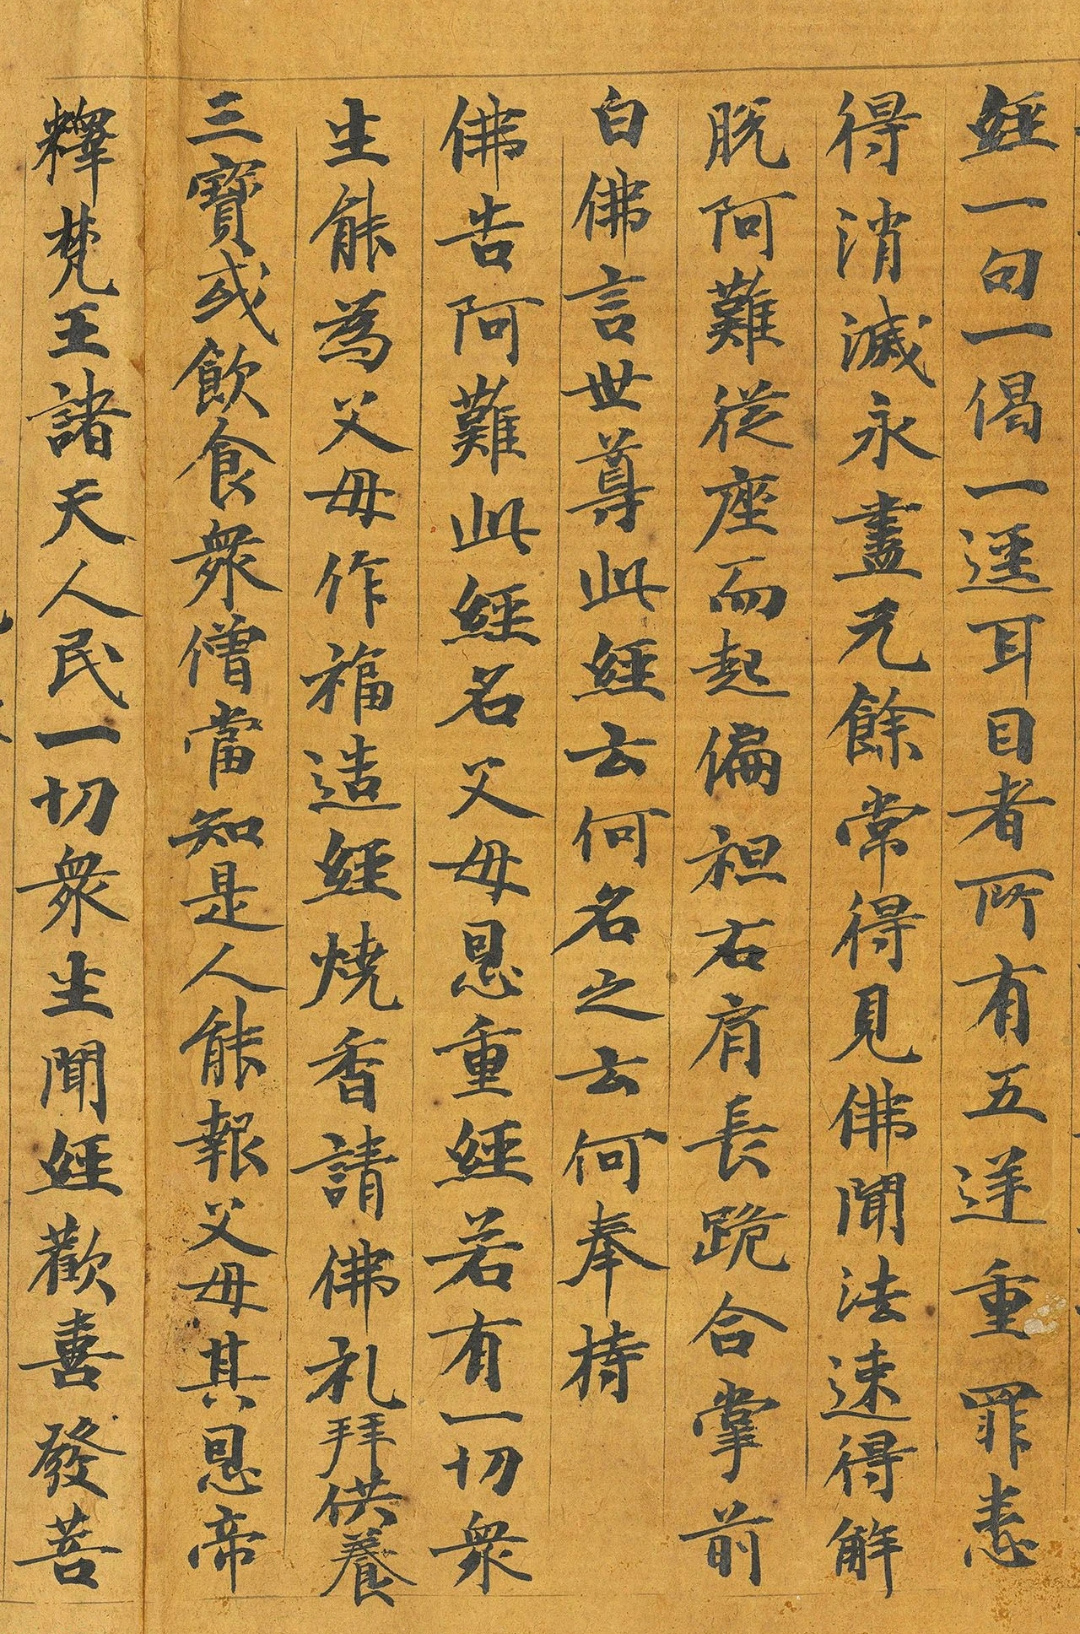 經一句一偈一逕耳目者所有五逆重罪悉
得消滅永盡无餘常得見佛聞法速得解
脫阿難從座而起偏袒右肩長跪合掌前
白佛言世尊此經云何名之云何奉持
佛告阿難此經名父母恩重經若有一切衆
生能為父母作福造經燒香請佛礼拜供養
三寶或飲食衆僧當知是人能報父母其恩帝
釋梵王諸天人民一切衆生聞經歡喜發菩